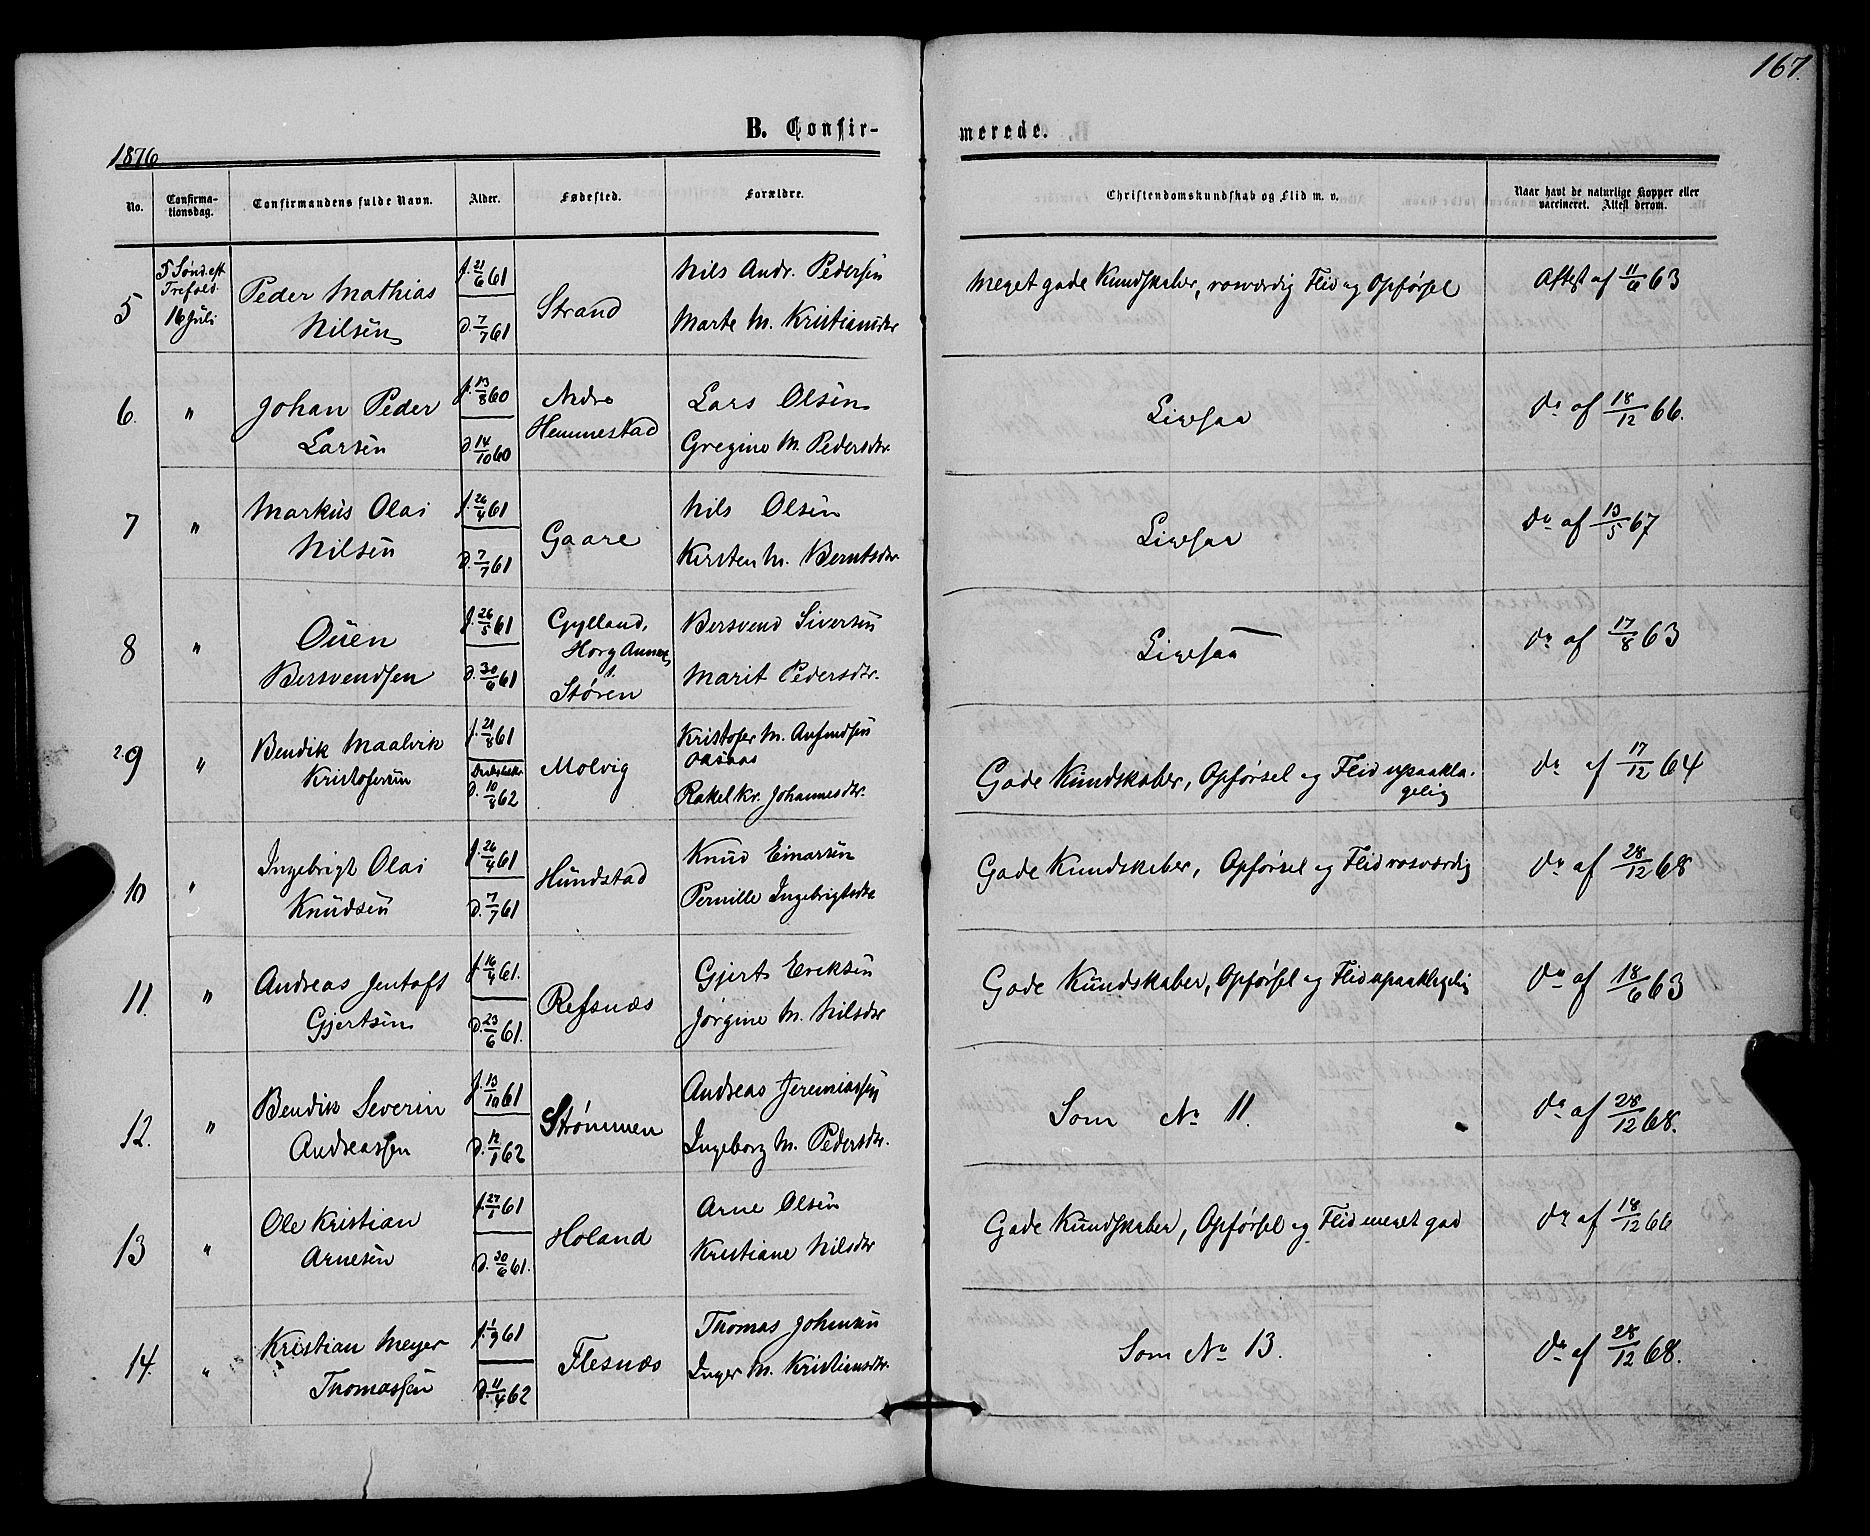 167.
B. Confir-
merede.
1876
No.
Confirma-
tionsdag.
Confirmandens fulde Navn.
Alder.
Fødested.
Forældre.
Christendomskundskab og Flid m. v.
Naar havt de naturlige Kopper eller
vaccineret. Attest derom.
5
5 Sønd. eft
Trefold.
16 Juli
Peder Mathias
Nilsen
f. 21/6 61
d. 7/7 61
Strand
Nils Andr. Pedersen
Marte M. Kristiansdtr
Meget gode Kundskaber, rosværdig Flid og Opførsel
Attest af 11/6 63
6.
"
Johan Peder
Larsen
f. 13/8 60
d. 14/10 60
Nedre
Hemmestad
Lars Olsen
Gregine M. Pedersdtr.
Ligesaa
do af 18/12 66.
7
"
Markus Olai
Nilsen
f. 26/4 61
d. 7/7 61
Gaare
Nils Olsen
Kirsten M. Berntsdtr.
Ligesaa
do af 13/5 67
8
"
Ouen
Bersvendsen
f. 26/5 61
d. 30/6 61
Gylland,
Horg Annex
t.
Støren
Bersvend Siversen
Marit Pedersdtr.
Ligesaa
do af 17/8 63
9
"
Bendik Maalvik
Kristofersen
f. 21/8 61
d. 10/8 62
Molvig
Kristofer M. Anfindsen
Aasaas
Rakel Kr. Johannesdtr.
Gode Kundskaber, Opførsel og Flid upaakla-
gelig
do af 17/12 64
10
"
Ingebrigt Olai
Knudsen
f. 26/4 61
d. 7/7 61
Hundstad
Knud Einarsen
Pernille Ingebrigtsdtr
Gode Kundskaber, Opførsel og Flid rosværdig
do af 28/12 68
11.
"
Andreas Jentoft
Gjertsen
f. 16/4 61.
d. 23/6 61.
Refsnæs
Gjert Eriksen
Jørgine M. Nilsdtr
Gode Kundskaber, Opførsel og Flid upaaklagelig
do af 18/6 63
12.
"
Bendik Severin
Andreassen
f. 13/10 61
d. 12/1 62
Strømmen
Andreas Jeremiassen
Ingeborg M. Pedersdtr.
Som No 11.
do af 28/12 68.
13
"
Ole Kristian
Arnesen
f. 27/1 61
d. 30/6 61.
Holand
Arne Olsen
Kristiane Nilsdtr
Gode Kundskaber, Opførsel og Flid meget god
do af 18/12 66
14.
"
Kristian Meyer
Thomassen
f. 1/9 61
d. 11/4 62
Flesnæs
Thomas Johnsen
Inger M. Kristiansdtr.
Som No 13.
do af 28/12 68.